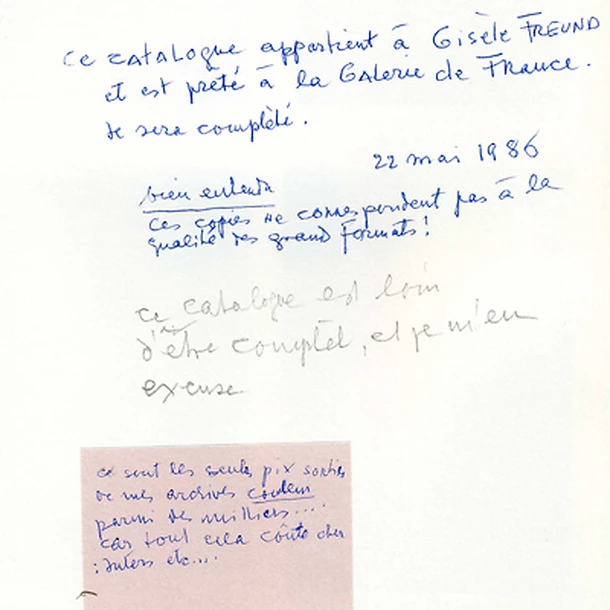 Ce CATALOGUE appartient à Gisèle FREUND
et est prêté à la GALerie de France.
Se sera complèté.
22 mai 1986
bien entendu
Ces copies ne correspondent pas à la
qualité des grand formats!
ce catalogue est loin
d'être complèt, et je m'en
excuse
ce sont les seuls pix sorties
de mes archives couleur
parmi des milliers....
car tout cela coûte cher
: inters etc....